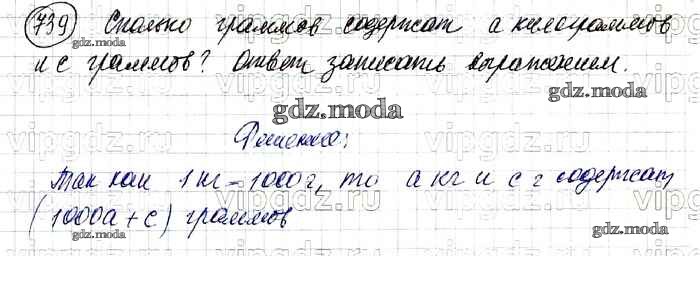 739 Сколько граммов содержат a килограммов
и c граммов? Ответ записать выражением.
gdz.moda
gdz.moda
gdz.moda
Решение:
Так как 1 кг = 1000 г, то a кг и c г содержат
(1000a + c) граммов
gdz.moda
gdz.moda
vipgdz.ru